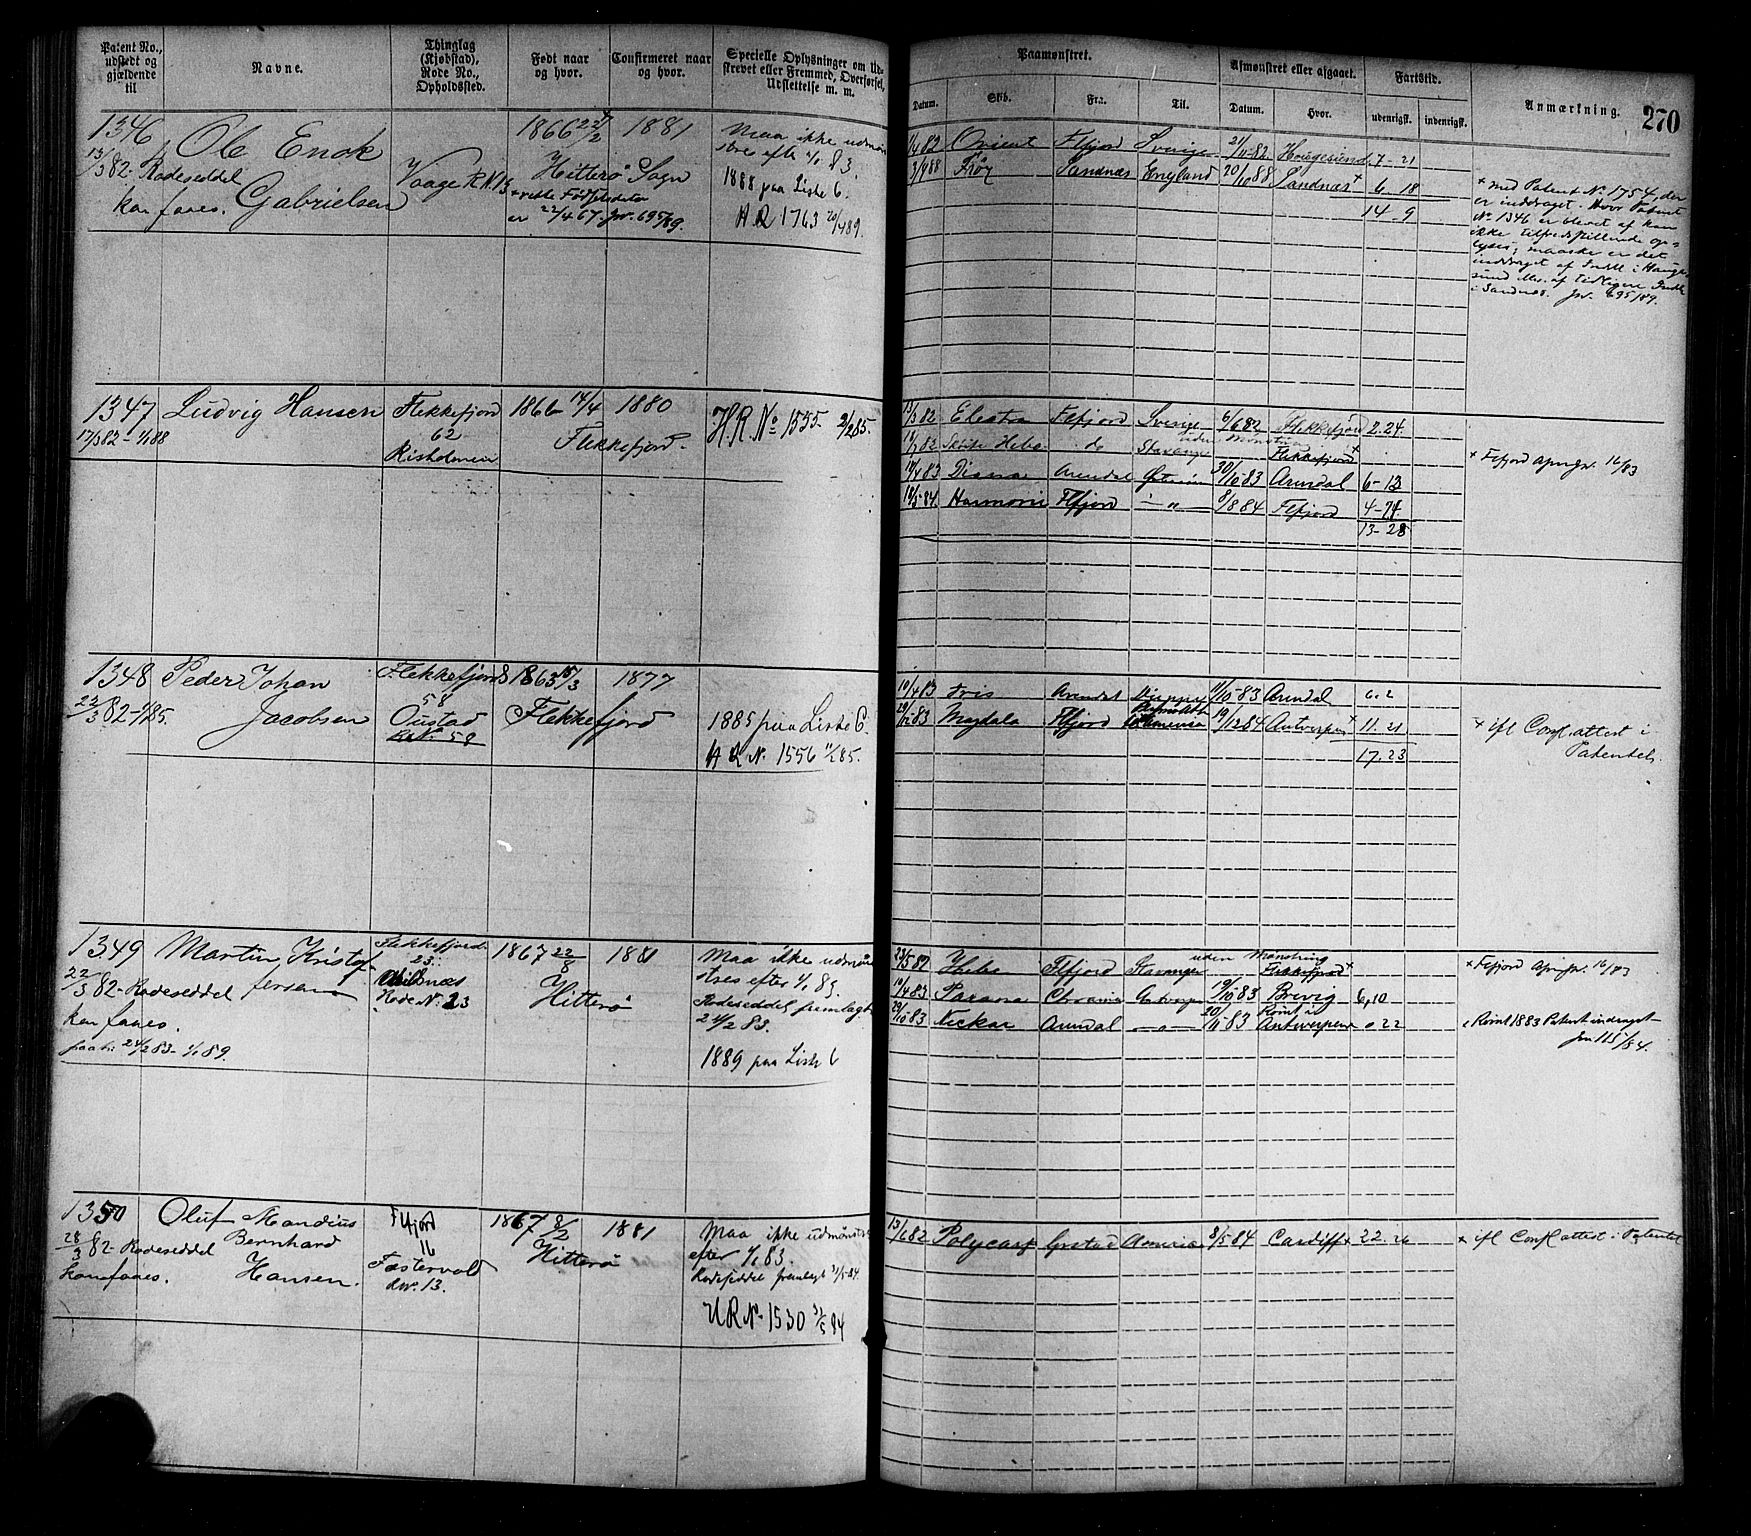 Patent No., udstedt og gjældende til
Navne.
Thinglag (Kjøbstad), Rode No., Opholdssted.
Født naar og hvor.
Confirmeret naar og hvor.
Specielle Oplysninger om Udskrevet eller Fremmed, Overførsel, Udslettelse m. m.
Paamønstret.
Datum.
Skib.
Fra.
Til.
Afmønstret eller afgaaet.
Datum.
Hvor.
Fartstid.
udenrigsk.
indenrigsk.
Anmærkning.
270
1346
13/3 82 - Rodeseddel
kan faaes.
Ole Enok
Gabrielsen
Vaage R. N. 13
1866 22/2 1881
Hitterø Sogn
rette Fødselsdato
er 22/4 67. Jvr. 695/89.
Maa ikke udmøn
stres efter 1/1 83.
1888 paa Liste C.
H R 1763 20/4 89.
1/4 82 Orient Flfjord Sverige 21/11 82 Hougesund 7-21
3/4 88 Frøy Sandnæs England 20/10 88 Sandnæs + 6-18
14-9
+ med Patent No 1754, der
er inddraget. Hvor Patent
No 1346 er blevet af kan
ikke tilfredsstillende op=
lyses; maaske er det
inddraget af Indr. i Hauge
sund eller af tidligere Indr.
i Sandnæs. Jvr. 695/89.
1347
17/3 82 - 1/1 88
Ludvig Hansen
Flekkefjord
62
Risholmen
1866 14/4 1880
Flekkefjord.
H. R. No 1555. 2/2 85.
13/3 82 Electra Flfjord Sverige 6/6 82 Flekkefjord 2.24.
Hebe do Stavanger uden Mønstring Flekkefjord +
14/4 83 Diana Arendal 30/10 83 Arendal 6-13
Harmoni Flfjord - " - 9/8 84 Flfjord
13-28
+ Fefjord Apmjr. 16/83
1348
22/3 82 - 1/1 85.
Peder Johan
Jacobsen
Flekkefjord
58
Oustad
R. N. 58
1863 15/3 1877
Flekkefjord
1885 paa Liste C.
H R N. 1556 1/2 85.
10/4 83 Iris Arendal Dieppe 11/10 83 Arendal 6.2
Magdala Flfjord 19/12 84 Antwerpen + 11.21
17.23
+ ifl Conf. attest i
Patentet.
1349
22/3 82 - Rodeseddel
kan faaes.
24/2 83 - 1/1 89.
Martin Kristof
fersen
Flekkefjord
23
Rode N. 23
1867 22/8 1881
Hitterø
Maa ikke udmøn
stres efter 1/1 83.
Rodeseddel fremlagt
24/2 83.
1889 paa Liste C
Hebe Flfjord Stavanger uden Mønstring Flekkefjord +
10/4 83 Parana Antwerpen 19/10 83 Brevig 6,10
29/10 83 Neckar Arendal - " - 20/11 83 Rømt i Antwerpen 0 22
+ Fefjord Apmjr. 16/83
Rømt 1883 Patent inddraget
jvr 115/84.
1350
28/3 82 - Rodeseddel
kan faaes.
Oluf Mandius
Bernhard
Hansen.
Flfjord
16
Fostervold
13.
1867 8/2 1881
Hitterø
Maa ikke udmønstres
efter 1/1 83.
Rodeseddel fremlagt
H R N. 1530
13/6 82 Polycarp Grstad America 8/5 84 Cardiff + 22.26
+ ifl Conf attest i Patentet